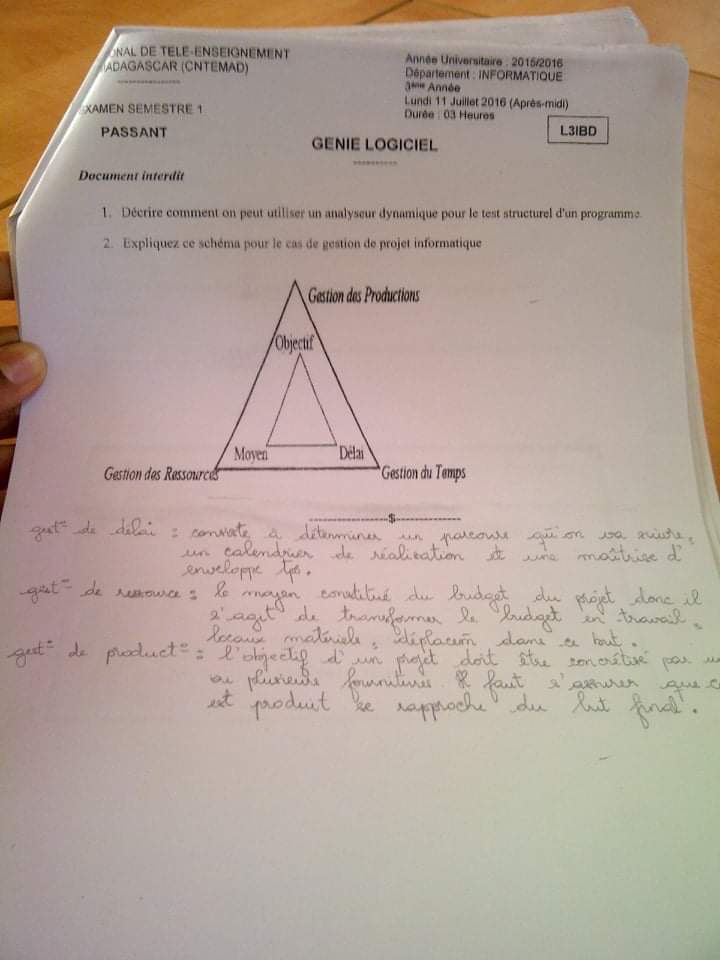 ONAL DE TELE-ENSEIGNEMENT
ADAGASCAR (CNTEMAD)
---------------
EXAMEN SEMESTRE 1
PASSANT
Année Universitaire : 2015/2016
Département : INFORMATIQUE
3ème Année
Lundi 11 Juillet 2016 (Après-midi)
Durée : 03 Heures
L3IBD
GENIE LOGICIEL
----------
Document interdit
1. Décrire comment on peut utiliser un analyseur dynamique pour le test structurel d'un programme.
2. Expliquez ce schéma pour le cas de gestion de projet informatique
Gestion des Productions
Objectif
Moyen
Délai
Gestion des Ressources
Gestion du Temps
----------------$-------------
gest° de délai : consiste à déterminer un parcours qu'on va suivre,
un calendrier de réalisation et une maîtrise d'
enveloppe tps.
gest° de ressource : le moyen constitué du budget du projet donc il
s'agit de transformer le budget en travail,
locaux matériels, déplacem dans ce but.
gest° de product° : l'objectif d'un projet doit être concrétisé par u
ou plusieurs fournitures. Il faut s'assurer que c
est produit se rapproche du but final.